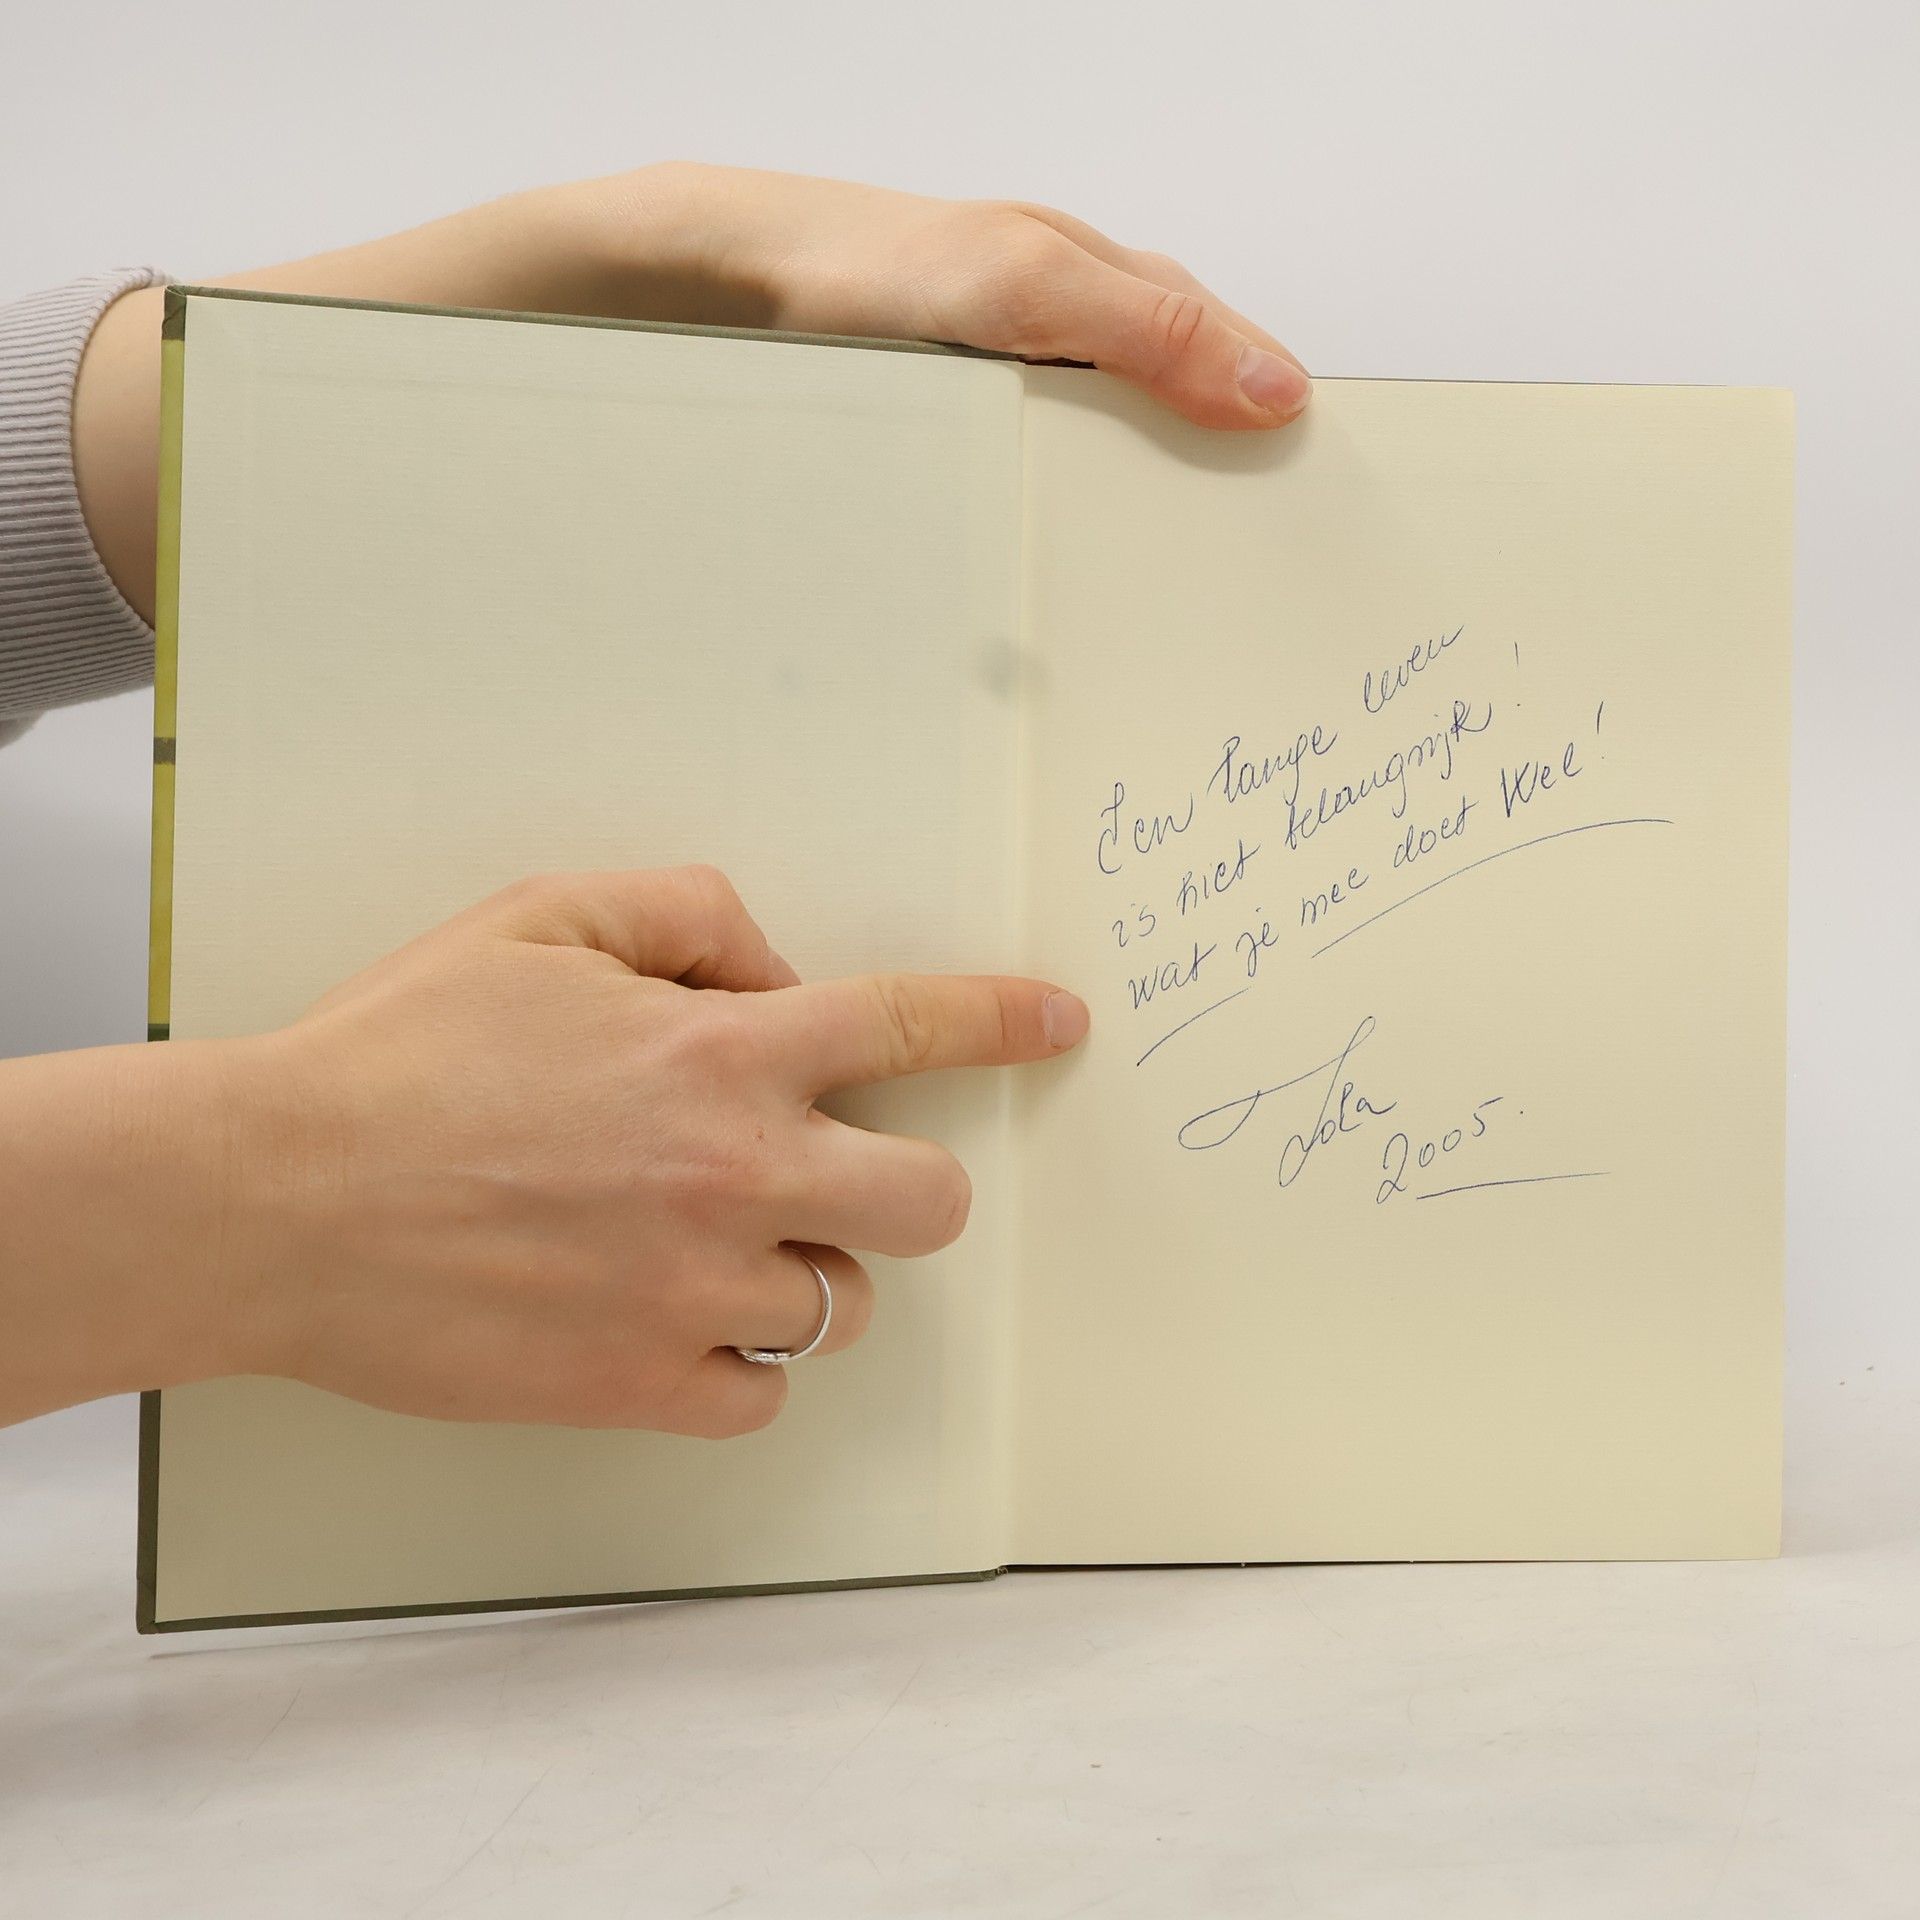 Een lange leven
is niet belangrijk!
wat je mee doet Wel!
Lola
2005.